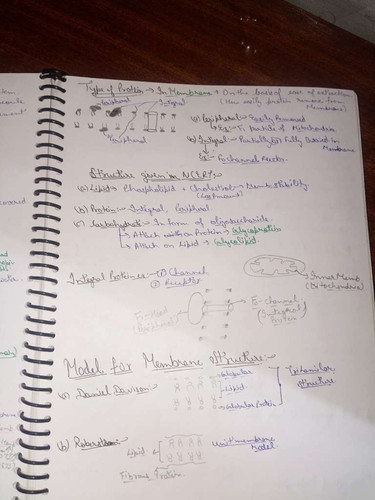 Type of Protein → In Membrane → On the basis of ease of extraction
(How easily protein remove from
Membrane)
Peripheral
Integral
Peripheral
(a) Peripheral: Easily Removed
Eg: F₁ particle of Mitochondria
(b) Integral: Partially or Fully Buried in
Membrane
Eg:- F₀ channel
Structure given in NCERT:-
(a) Lipid → Phospholipid + Cholesterol →
(b) Protein:- Integral, Peripheral
(c) Carbohydrate:- In form of oligosaccharide.
→ Attach with on Protein → Glycoprotein
→ Attach on Lipid → Glycolipid.
Integral Protein → ① Channel
② Receptor
Inner Memb
(Mitochondria)
F₁-Head
(Peripheral)
F₀-Channel
(Integral
Protein)
Model for Membrane Structure:-
(a) Daniel Davison:-
Globular
Lipid
Globular Protein
Trilamilar
Structure
(b) Robertson:-
Lipid
Unit membrane
Model.
Fibrous Protein.